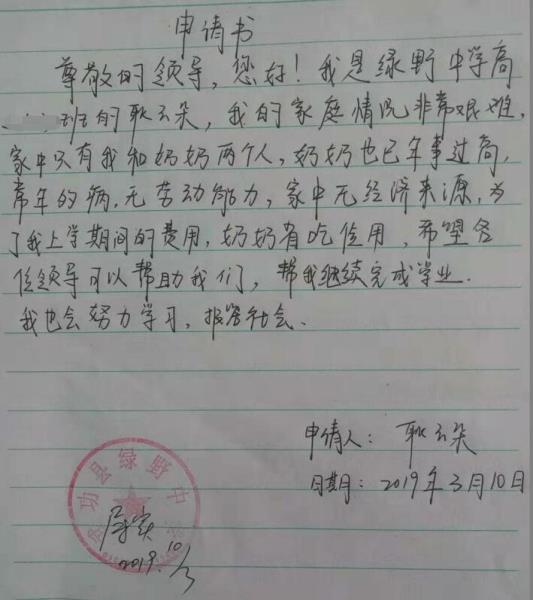 申请书
尊敬的领导，您好！我是绿野中学高
班的耿云朵，我的家庭情况非常艰难，
家中只有我和奶奶两个人，奶奶也已年事过高，
常年的病，无劳动能力，家中无经济来源，为
了我上学期间的费用，奶奶省吃俭用，希望各
位领导可以帮助我们，帮我继续完成学业．
我也会努力学习，报答社会．
申请人：耿云朵
日期：2019年3月10日
功县绿野中
属实
2019.10/3